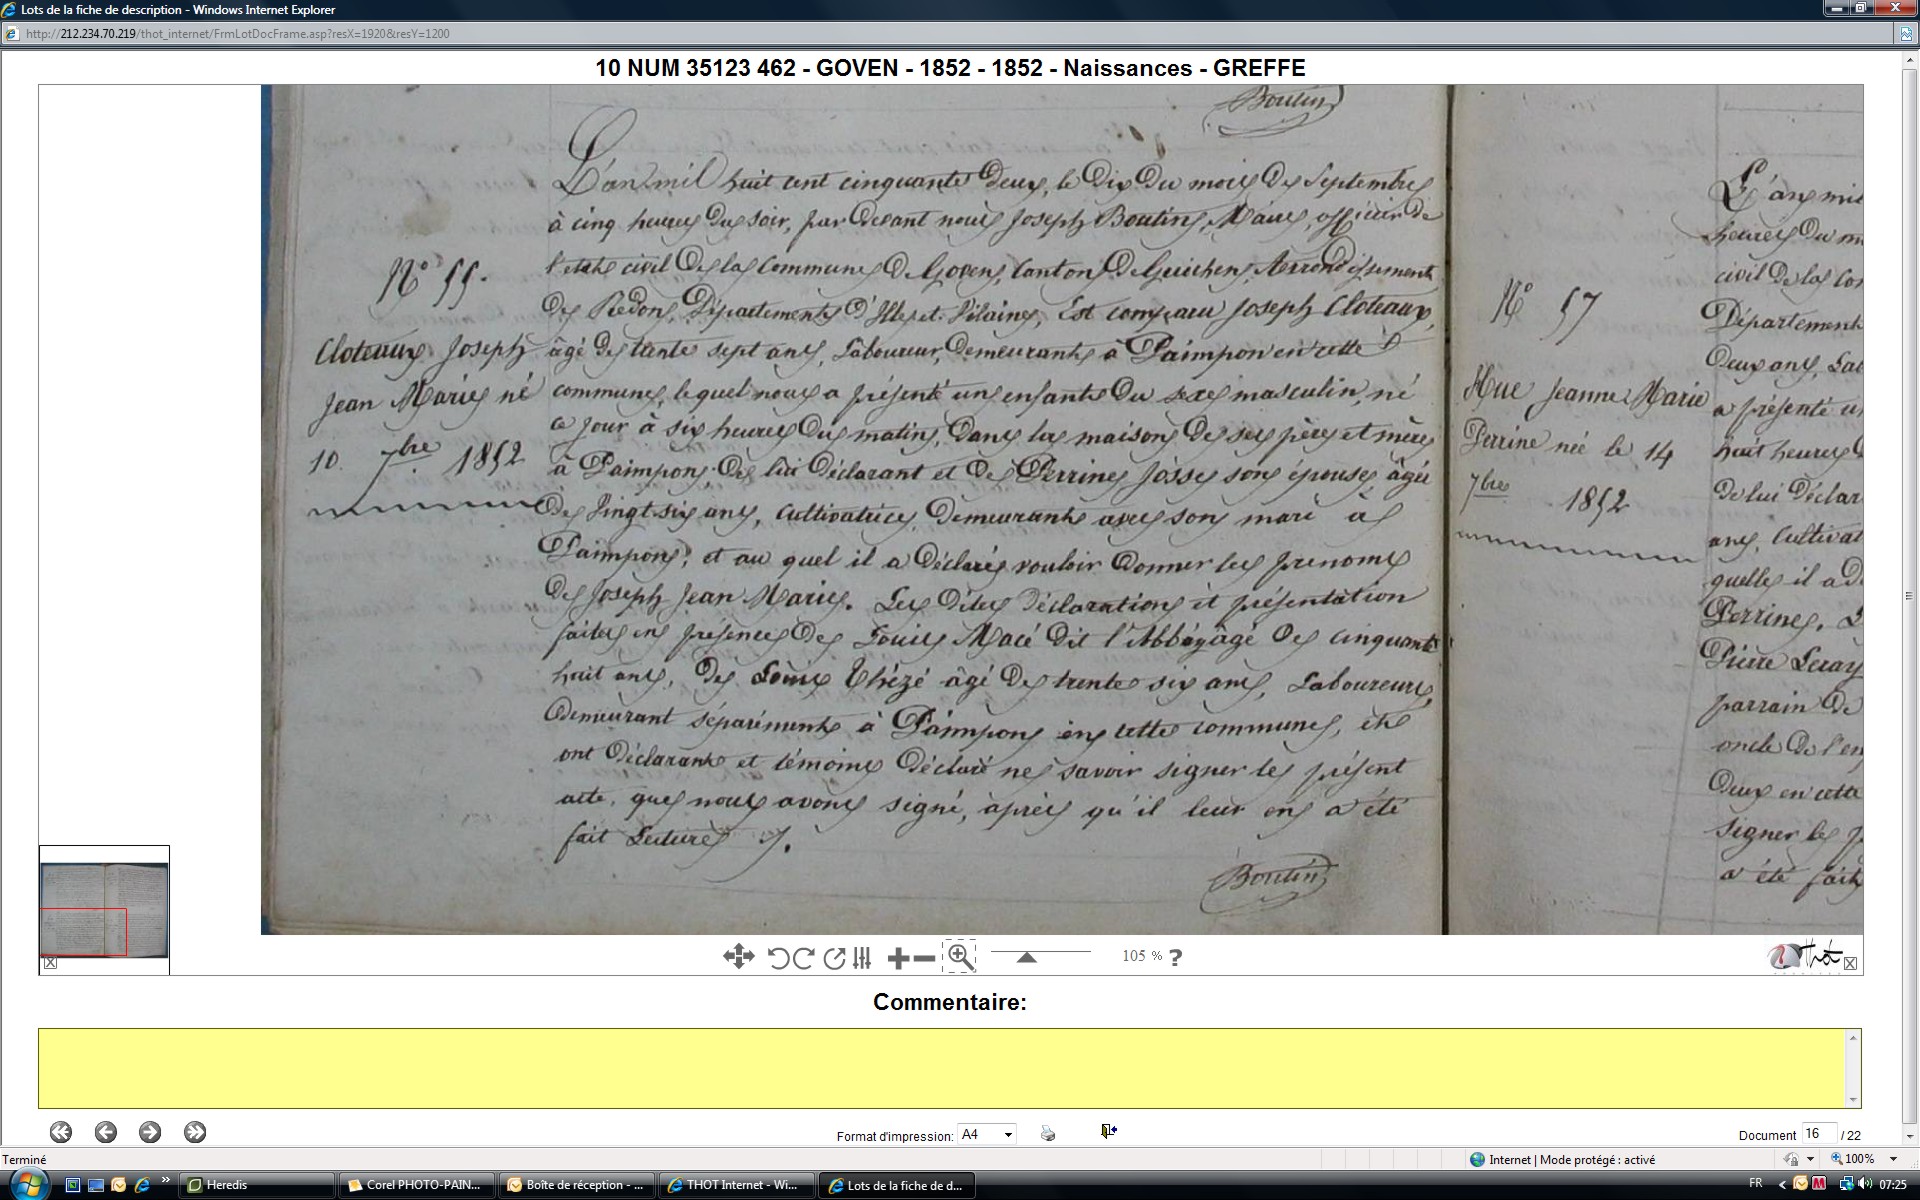 Lots de la fiche de description - Windows Internet Explorer
http://212.234.70.219/thot_internet/FrmLotDocFrame.asp?resX=1920&resY=1200
10 NUM 35123 462 - GOVEN - 1852 - 1852 - Naissances - GREFFE
Boutin
N° 55.
Cloteaux Joseph
Jean Marie né
10. 7bre 1852
L'an mil huit cent cinquante deux, le dix du mois de Septembre
à cinq heures du soir, par devant nous Joseph Boutin, Maire, officier de
l'état civil de la commune de Goven, Canton de Guichen, Arrondissement
de Redon, Département d'Ille et Vilaine, Est comparu Joseph Cloteaux,
âgé de trente sept ans, Laboureur, demeurant à Paimpon en cette
commune, lequel nous a présenté un enfant du sexe masculin, né
ce jour à six heures du matin, dans la maison de ses père et mère
à Paimpon, de lui déclarant et de Perrine Josse son épouse, âgée
de Vingt six ans, cultivatrice, demeurant avec son mari à
Paimpon, et au quel il a déclaré vouloir donner les prenoms
de Joseph Jean Marie. Les dites déclaration et présentation
faites en présence de Louis Macé dit l'Abbé, âgé de cinquante
huit ans, de Louis Thézé âgé de trente six ans, Laboureurs,
demeurant séparément à Paimpon en cette commune, et
ont déclarant et témoins déclaré ne savoir signer le présent
acte, que nous avons signé, après qu'il leur en a été
fait Lecture
Boutin
N° 57
Hue Jeanne Marie
Perrine née le 14
7bre 1852
L'an mil
heures du m
civil de la Co
Département
Deux ans, La
a présenté u
huit heures
de lui déclar
ans, Cultivat
quelle il a d
Perrine. L
Pierre Leray
parrain de
oncle de l'en
Deux en cette
signer le p
a été fait
105 % ?
Thot
Commentaire:
Format d'impression: A4
Document 16 / 22
Terminé
Internet | Mode protégé : activé
100%
Heredis
Corel PHOTO-PAIN...
Boîte de réception - ...
THOT Internet - Wi...
Lots de la fiche de d...
FR
07:25